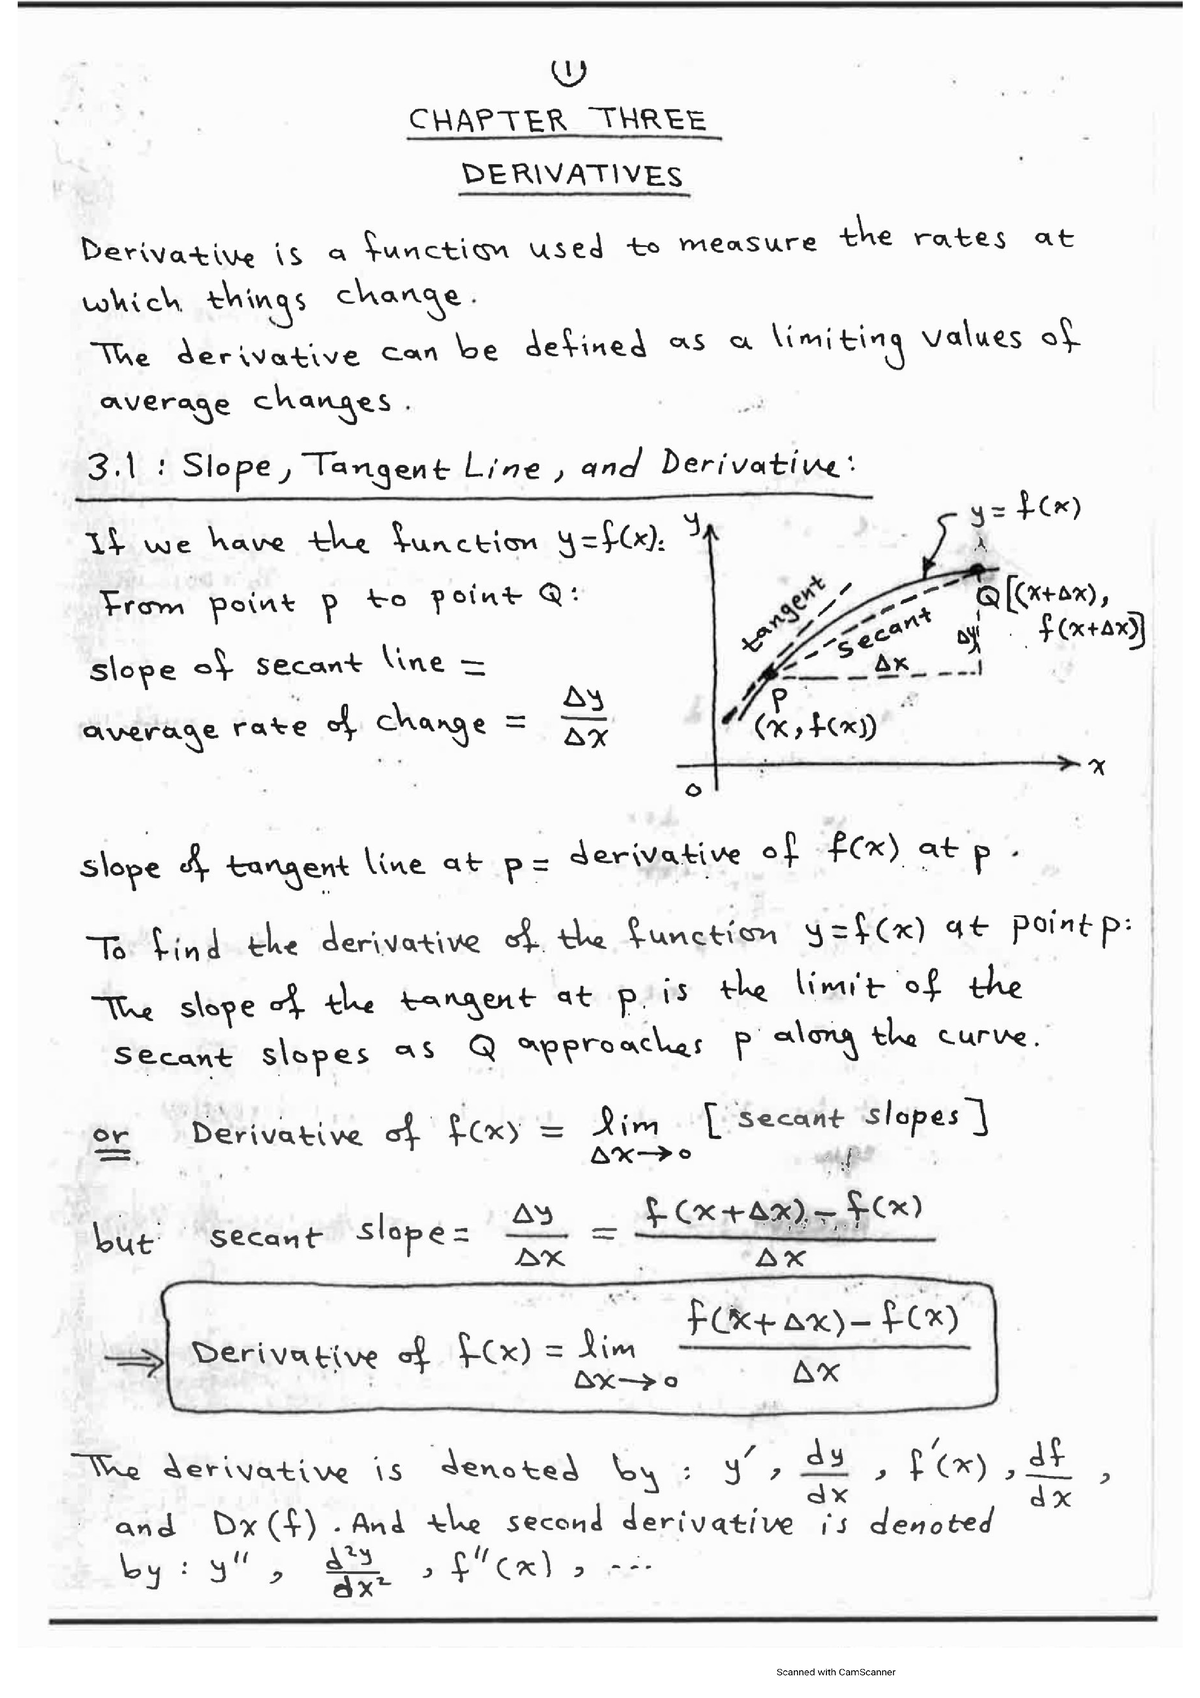 1
CHAPTER THREE
DERIVATIVES
Derivative is a function used to measure the rates at
which things change.
The derivative can be defined as a limiting values of
average changes.
3.1 : Slope, Tangent Line, and Derivative:
If we have the function y=f(x):
From point p to point Q:
slope of secant line =
average rate of change = Δy/Δx
y
y = f(x)
tangent
secant
Q[(x+Δx),
f(x+Δx)]
Δy
Δx
P
(x, f(x))
x
0
slope of tangent line at p = derivative of f(x) at p.
To find the derivative of the function y=f(x) at point p:
The slope of the tangent at p is the limit of the
secant slopes as Q approaches p along the curve.
or Derivative of f(x) = lim [secant slopes]
Δx→0
but secant slope = Δy/Δx = f(x+Δx) - f(x)/Δx
⇒ Derivative of f(x) = lim f(x+Δx) - f(x)/Δx
Δx→0
The derivative is denoted by : y′, dy/dx, f′(x), df/dx,
and Dx(f). And the second derivative is denoted
by : y″, d²y/dx², f″(x), ...
Scanned with CamScanner